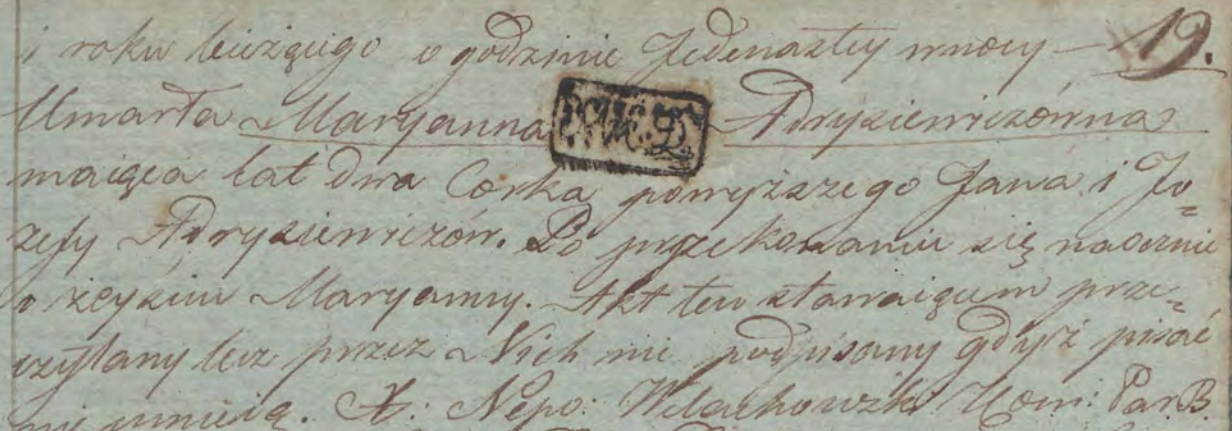 i roku bieżącego o godzinie Jedenastey wnocy — 19.
Umarła Maryanna Adrysiewiczówna
maiąca lat dwa Corka powyższego Jana i Jo=
zefy Adrysiewiczów. Po przekonaniu się naocznie
o zeyściu Maryanny. Akt ten stawaiącym prze=
czytany lecz przez Nich nie podpisany gdyż pisać
nie umieią. X: Nepo: Kom: Par. B.